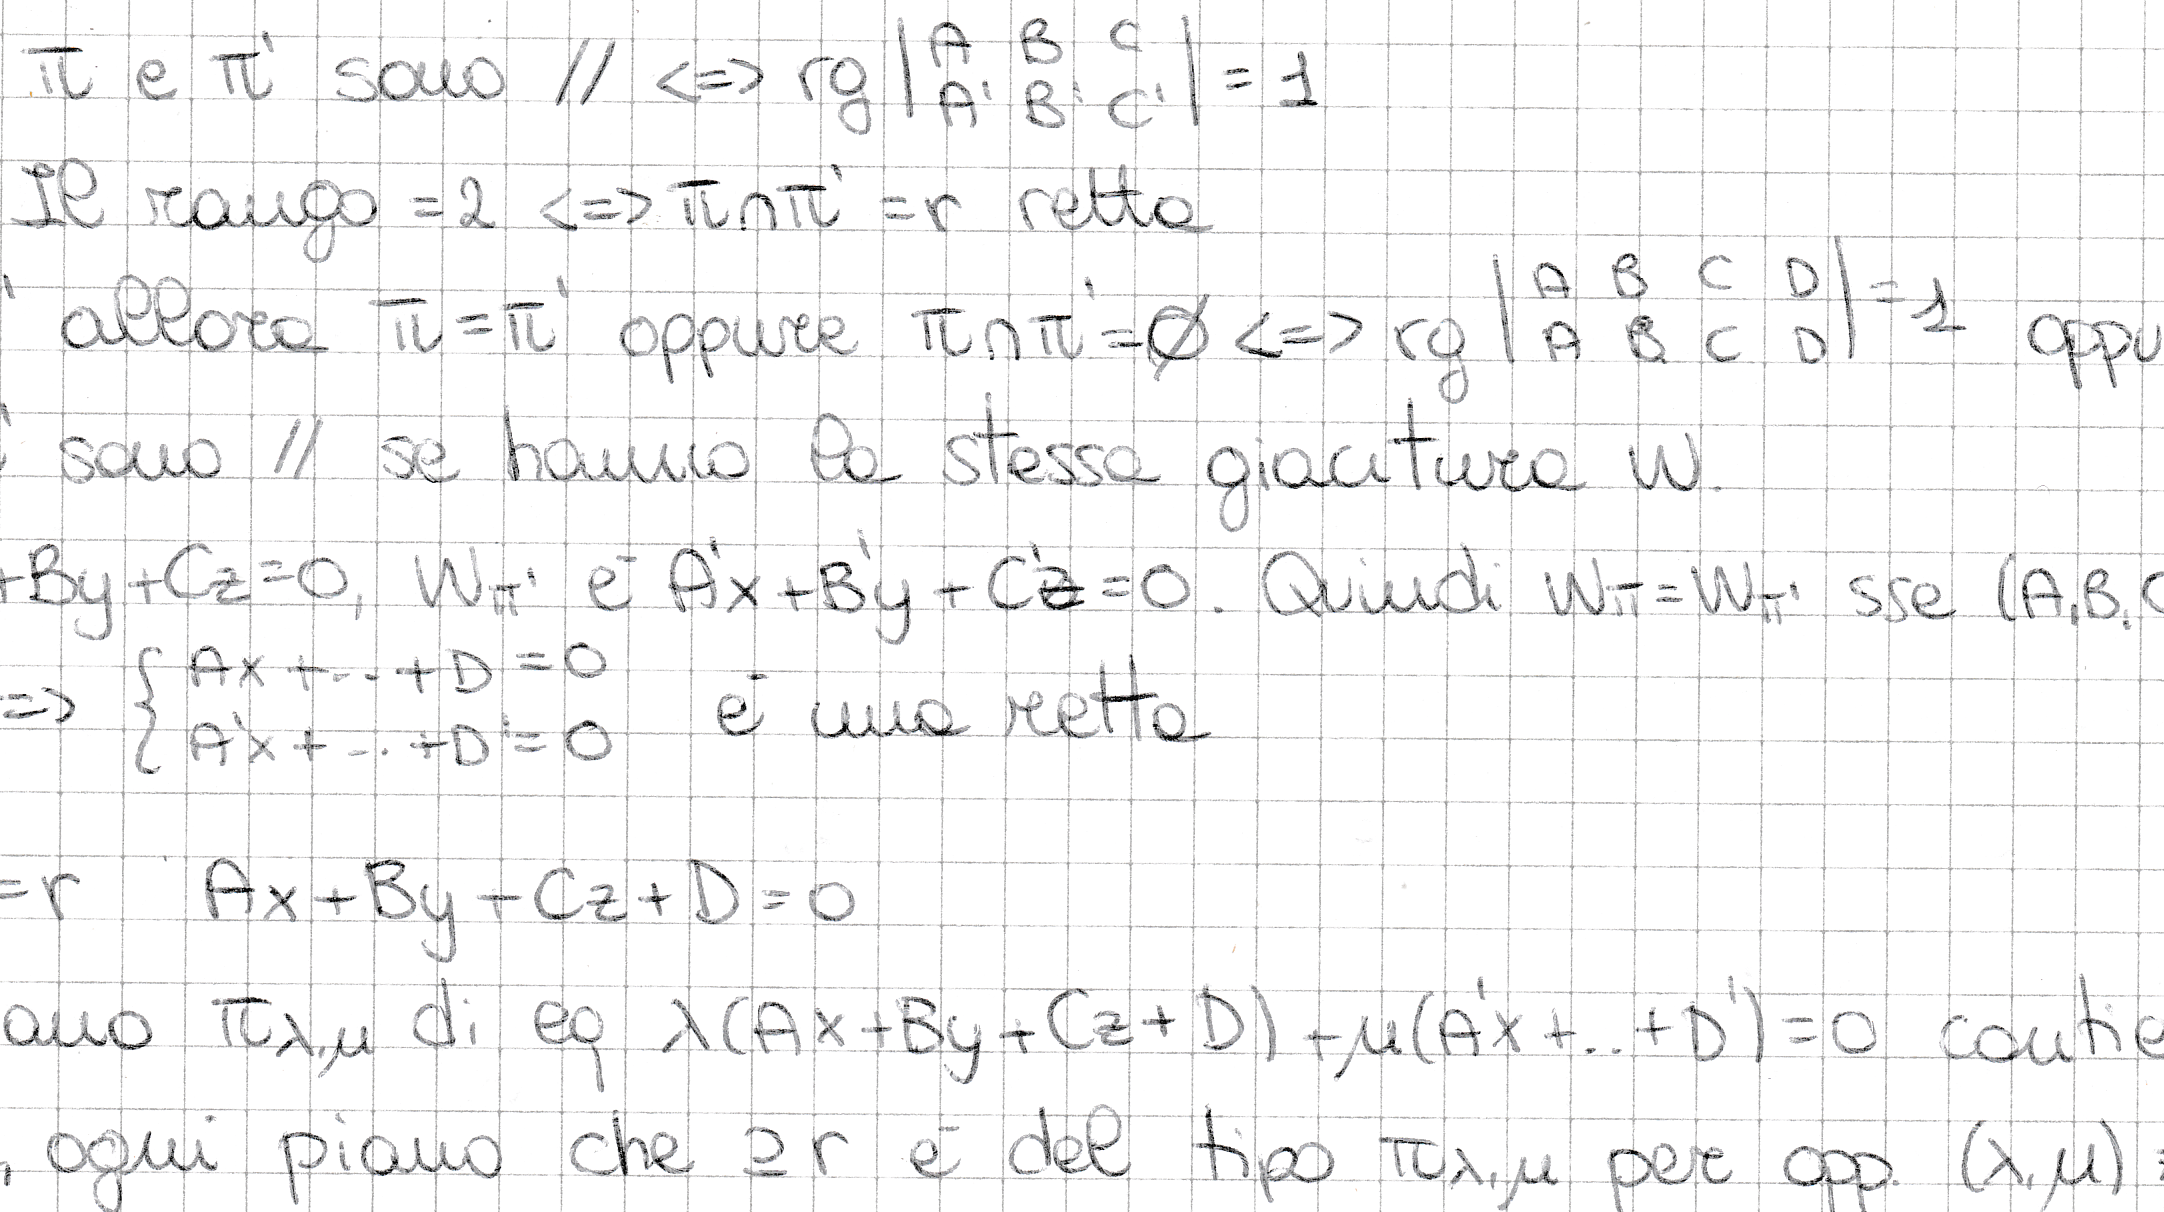 π e π' sono // <=> rg |A B C
A' B' C'| = 1
Il rango = 2 <=> π∩π' = r retta
' allora π = π' oppure π∩π' = Ø <=> rg |A B C D
A B C D| = 1 oppu
' sono // se hanno la stessa giacitura W.
+By+Cz=0, Wπ' è A'x+B'y+C'z=0. Quindi Wπ=Wπ' sse (A,B,C
=> { Ax+...+D=0
A'x+...+D'=0 è una retta
=r Ax+By+Cz+D=0
ano πλ,μ di eq λ(Ax+By+Cz+D)+μ(A'x+..+D')=0 contie
, ogni piano che ⊇r è del tipo πλ,μ per opp. (λ,μ)